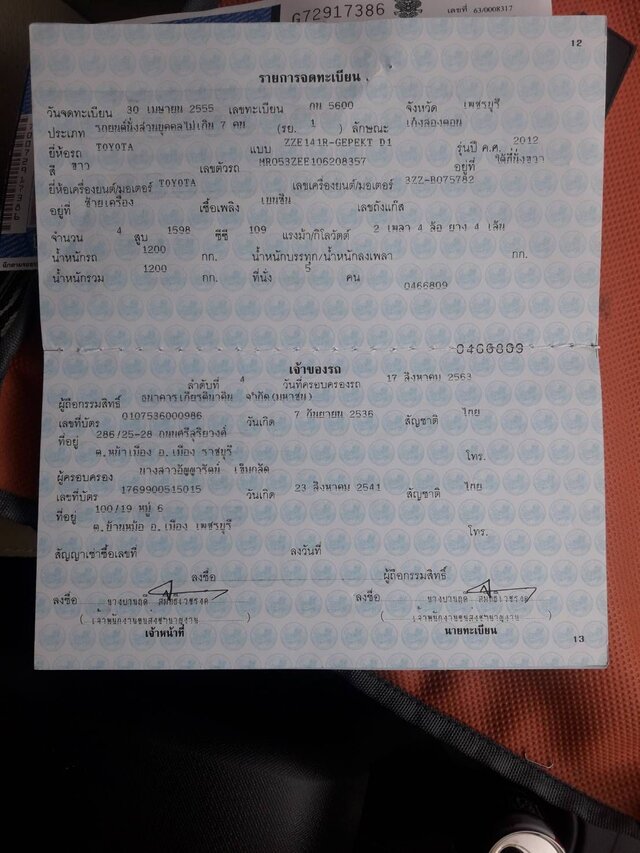 G72917386
เลขที่ 63/0008317
12
รายการจดทะเบียน
วันจดทะเบียน 30 เมษายน 2555 เลขทะเบียน กน 5600 จังหวัด เพชรบุรี
ประเภท รถยนต์นั่งส่วนบุคคลไม่เกิน 7 คน (รย. 1 ) ลักษณะ เก๋งสองตอน
ยี่ห้อรถ TOYOTA แบบ ZZE141R-GEPEKT D1 รุ่นปี ค.ศ. 2012
สี ขาว เลขตัวรถ MR053ZEE106208357 อยู่ที่ ใต้ที่นั่งขวา
ยี่ห้อเครื่องยนต์/มอเตอร์ TOYOTA เลขเครื่องยนต์/มอเตอร์ 3ZZ-B075782
อยู่ที่ ซ้ายเครื่อง เชื้อเพลิง เบนซิน เลขถังแก๊ส
จำนวน 4 สูบ 1598 ซีซี 109 แรงม้า/กิโลวัตต์ 2 เพลา 4 ล้อ ยาง 4 เส้น
น้ำหนักรถ 1200 กก. น้ำหนักบรรทุก/น้ำหนักลงเพลา กก.
น้ำหนักรวม 1200 กก. ที่นั่ง 5 คน
0466809
0466809
เจ้าของรถ
ลำดับที่ 4 วันที่ครอบครองรถ 17 สิงหาคม 2563
ผู้ถือกรรมสิทธิ์ ธนาคารเกียรตินาคิน จำกัด(มหาชน)
เลขที่บัตร 0107536000986 วันเกิด 7 กันยายน 2536 สัญชาติ ไทย
ที่อยู่ 286/25-28 ถนนศรีสุริยวงศ์
ต.หน้าเมือง อ.เมือง ราชบุรี โทร.
ผู้ครอบครอง นางสาวอัญญารัตน์
เลขที่บัตร 1769900515015 วันเกิด 23 สิงหาคม 2541 สัญชาติ ไทย
ที่อยู่ 100/19 หมู่ 6
ต.บ้านหม้อ อ.เมือง เพชรบุรี โทร.
สัญญาเช่าซื้อเลขที่ ลงวันที่
ลงชื่อ ผู้ถือกรรมสิทธิ์
ลงชื่อ ลงชื่อ
(เจ้าพนักงานขนส่งชำนาญงาน) (เจ้าพนักงานขนส่งชำนาญงาน)
เจ้าหน้าที่ นายทะเบียน
13